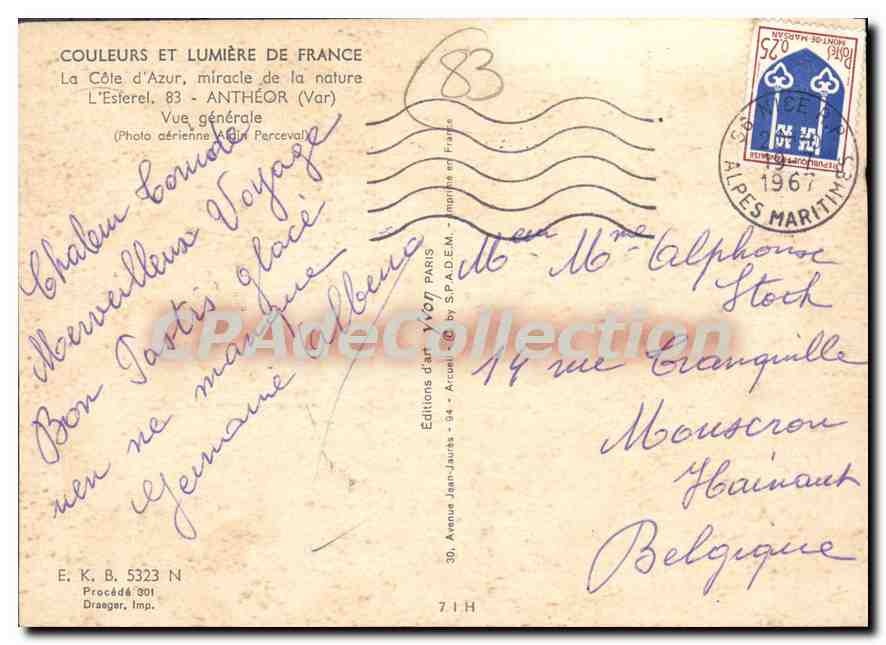 COULEURS ET LUMIÈRE DE FRANCE
La Côte d'Azur, miracle de la nature
L'Esterel. 83 - ANTHÉOR (Var)
Vue générale
(Photo aérienne Alain Perceval)
83
Chaleur Torride
Merveilleux Voyage
Bon Pastis glacé
rien ne manque
Germaine
E. K. B. 5323 N
Procédé 301
Draeger, Imp.
7 I H
Éditions d'art Yvon PARIS
30, Avenue Jean-Jaurès - 94 - Arcueil - © by S.P.A.D.E.M. - Imprimé en France
POSTES
0,25
MONT-DE-MARSAN
REPUBLIQUE FRANÇAISE
NICE R.P.
1967
ALPES MARITIMES
Mme Alphonse
Stock
14 rue Tranquille
Mouscron
Hainaut
Belgique
CPAdeCollection.com